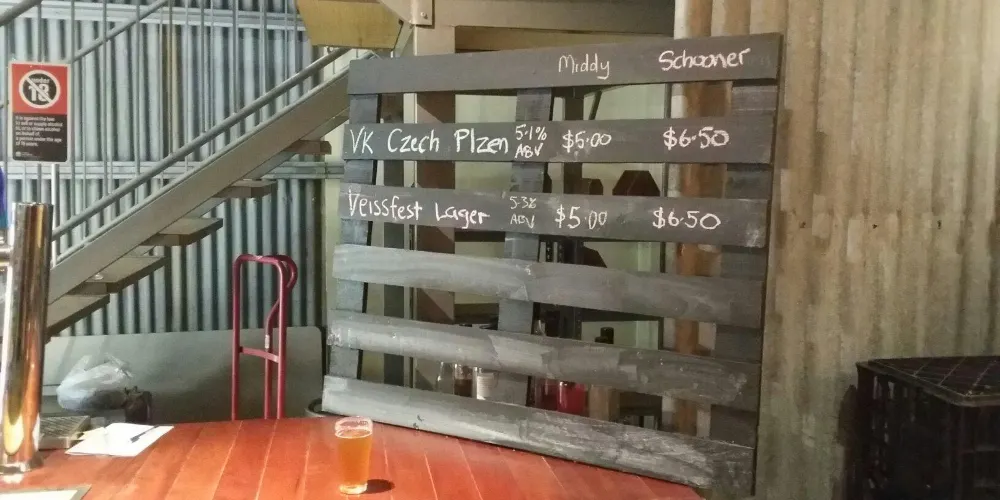 Middy Schooner
VK Czech Plzen 5.1% ABV $5.00 $6.50
Veissfest Lager 5.3% ABV $5.00 $6.50
under
18
It is against the law
to sell or supply alcohol
to, or to obtain alcohol
on behalf of
a person under the age
of 18 years.